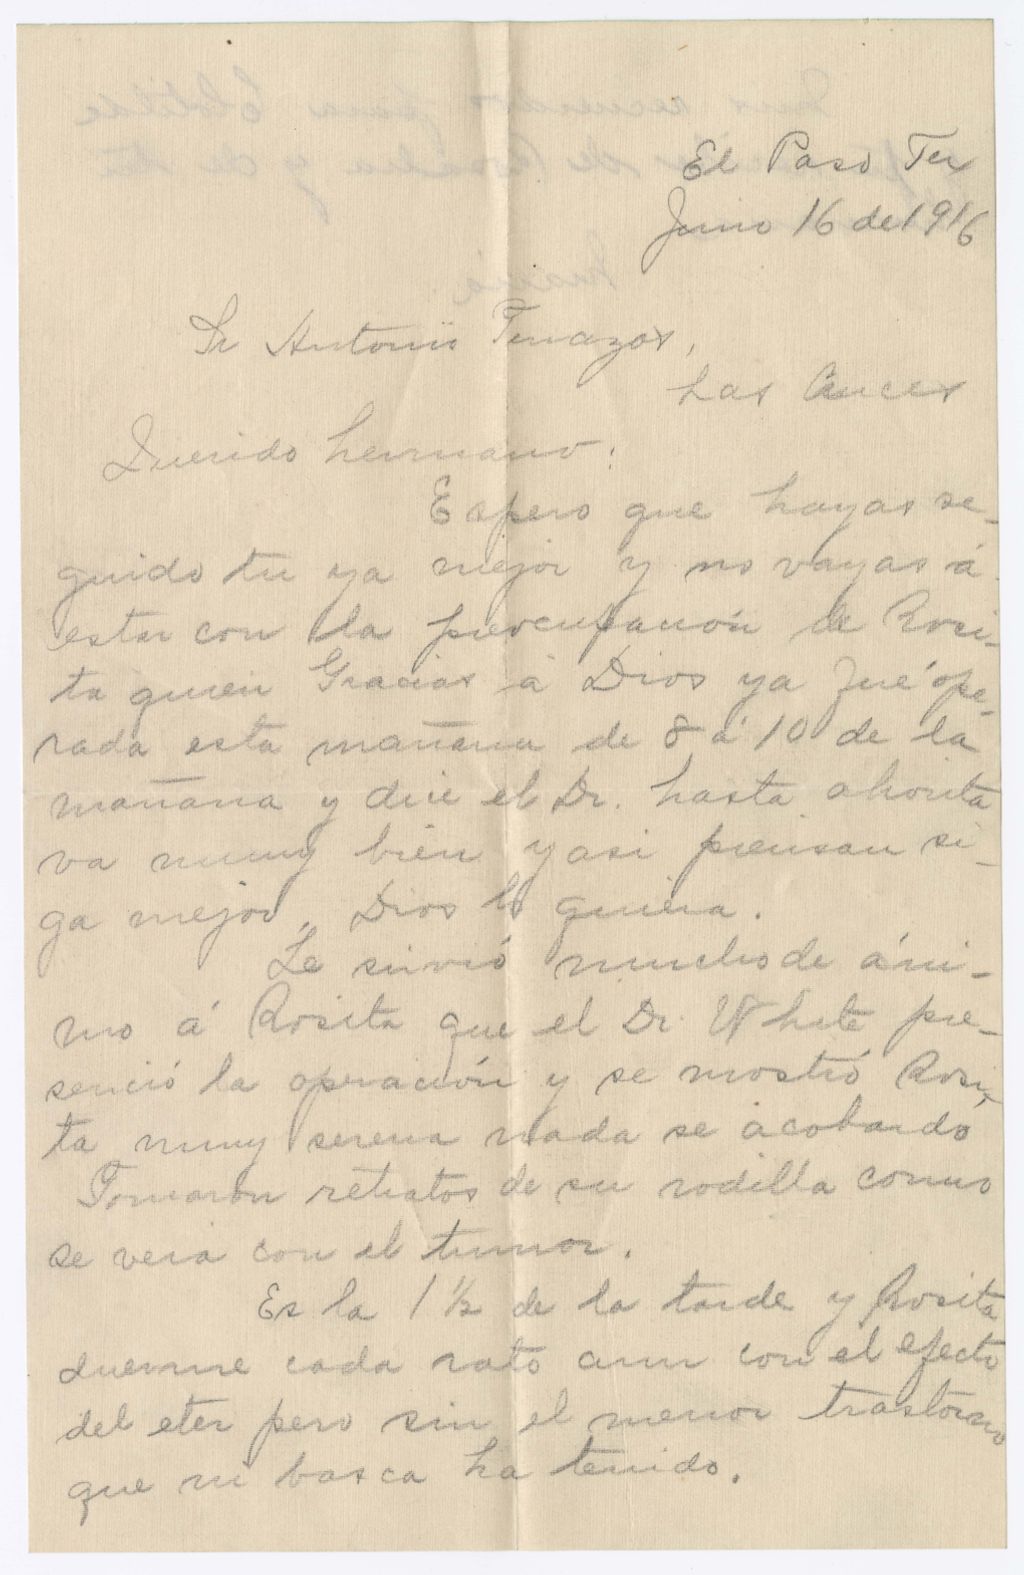 El Paso Tex
Junio 16 de 1916
Sr Antonio Terrazas,
Las Cruces
Querido hermano:
Espero que hayas se-
guido tu ya mejor y no vayas á
estar con la preocupación de Rosi-
ta quien Gracias á Dios ya fué ópe-
rada esta mañana de 8 á 10 de la
mañana y dice el Dr. hasta ahorita
va muuy bien y asi piensan si-
ga mejor, Dios lo quiera.
Le sirvió mucho de áni-
mo á Rosita que el Dr. White pre-
senció la operación y se mostró Rosi-
ta muy serena nada se acobardó
Tomaron retratos de su rodilla como
se veia con el tumor.
Es la 1 ½ de la tarde y Rosita
duerme cada rato aun con el efecto
del eter pero sin el menor trastorno
que ni basca ha tenido.